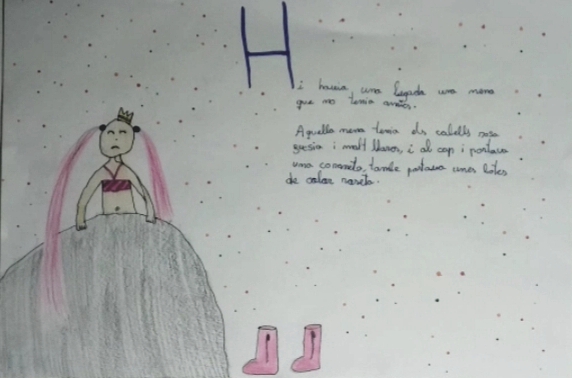 Hi havia una vegada una nena
que no tenia amics.
Aquella nena tenia els cabells rosa
i molt llargs, i al cap i portava
una coroneta, també portava unes botes
de color roseta.